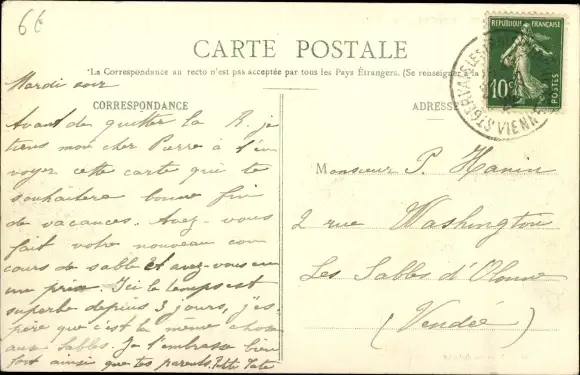 6€
CARTE POSTALE
*La Correspondance au recto n'est pas acceptée par tous les Pays Étrangers. (Se renseigner à la
Mardi soir
CORRESPONDANCE
Avant de quitter la R. je
tiens mon cher Pierre à t'en
voyer cette carte que te
souhaitera bonne fin
de vacances. Avez-vous
fait votre nouveau con
cours de sable et avez-vous eu
un prix. Ici le temps est
superbe depuis 3 jours, j'es
père que c'est la même chose
aux Sables. Je t'embrasse bien
fort ainsi que tes parents.
ADRESSE
Monsieur P. Hanin
2 rue Washington
Les Sables d'Olonne
(Vendée)
REPUBLIQUE FRANÇAISE
10c
POSTES
ST GERVAIS LES
VIENNE